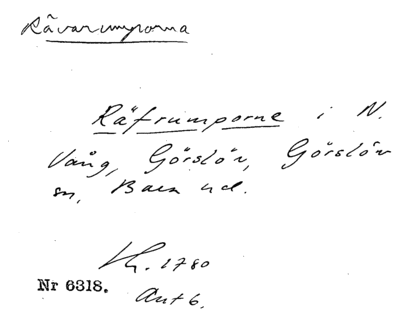 Rävarumporna
Räfrumporne i N.
Vång, Görslöv, Görslöv
sn, Bara hd.
Lh. 1780
Nr 6318.
Akt 6.